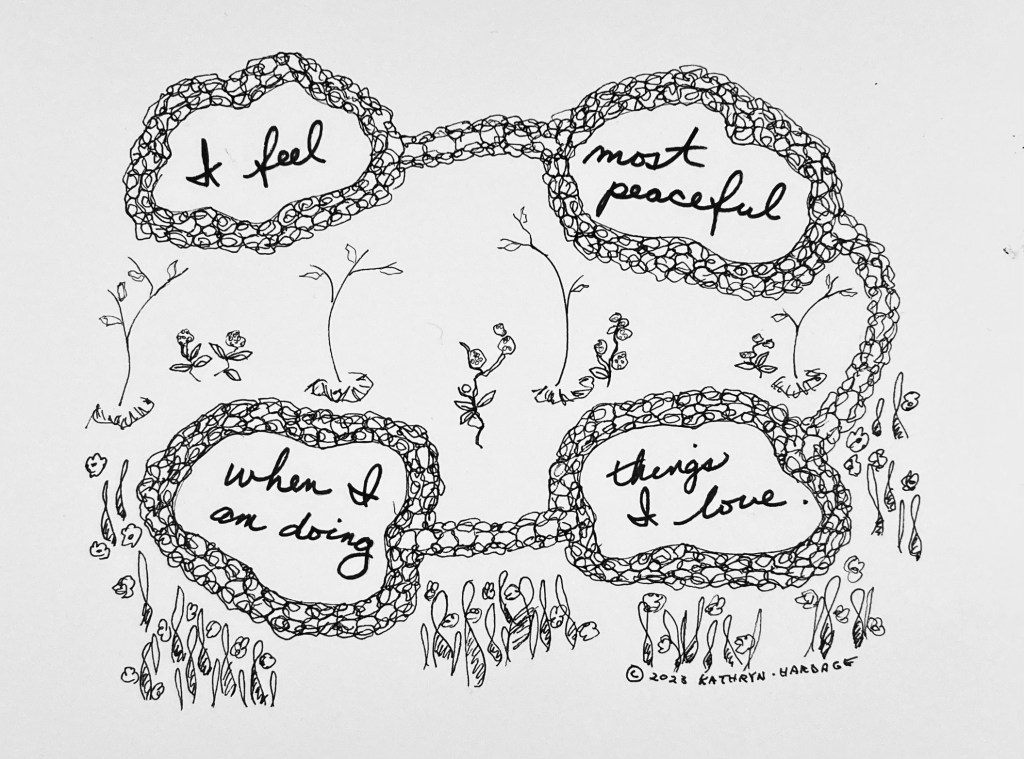 I feel
most
peaceful
when I
am doing
things
I love.
© 2023 KATHRYN·HARDAGE